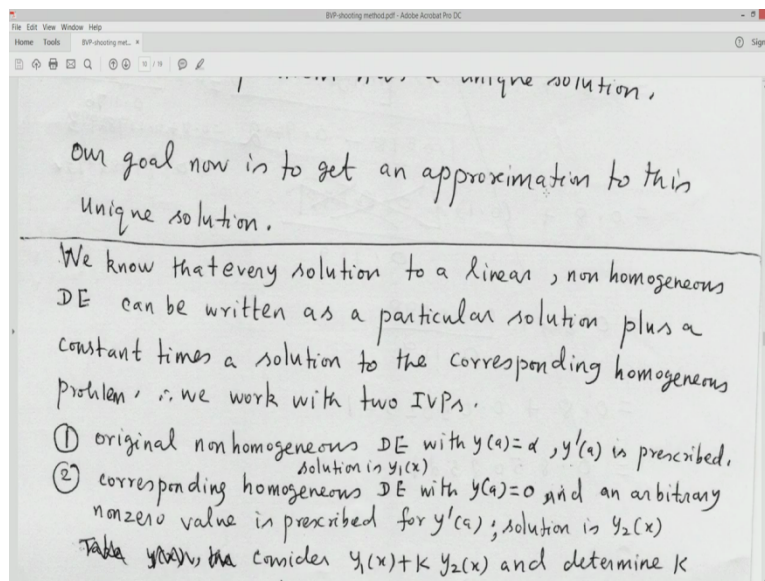 BVP-shooting method.pdf - Adobe Acrobat Pro DC
File Edit View Window Help
Home Tools BVP-shooting met... × Sign
/ 19
has a unique solution.
Our goal now is to get an approximation to this
unique solution.
We know that every solution to a linear, non homogeneous
DE can be written as a particular solution plus a
constant times a solution to the corresponding homogeneous
problem. ∴ we work with two IVPs.
① original nonhomogeneous DE with y(a)=α, y'(a) is prescribed.
solution is y₁(x)
② corresponding homogeneous DE with y(a)=0 and an arbitrary
nonzero value is prescribed for y'(a); solution is y₂(x)
consider y₁(x)+k y₂(x) and determine k